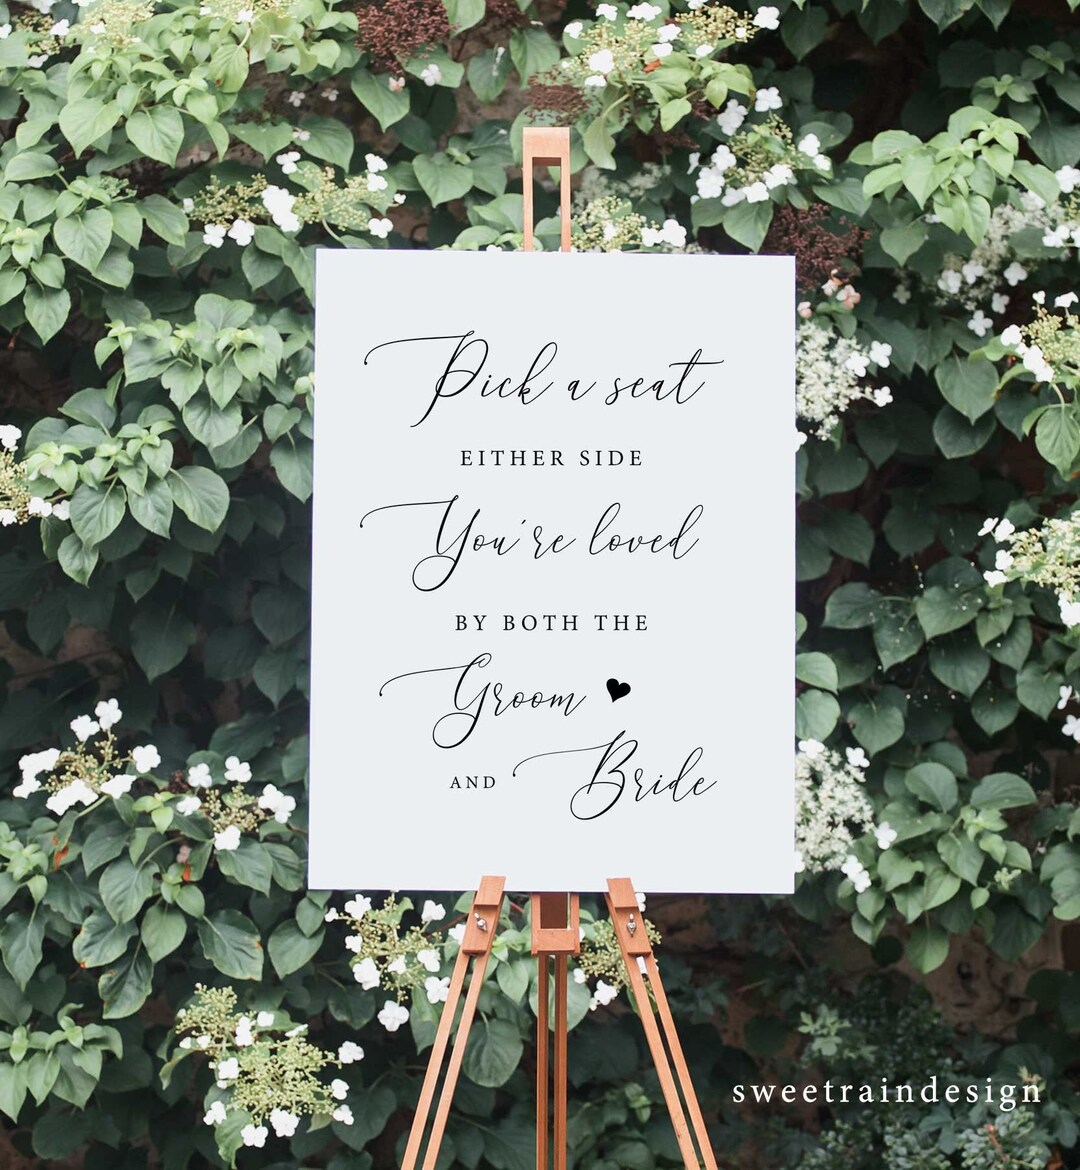 Pick a seat
EITHER SIDE
You're loved
BY BOTH THE
Groom ♥
AND Bride
sweetraindesign